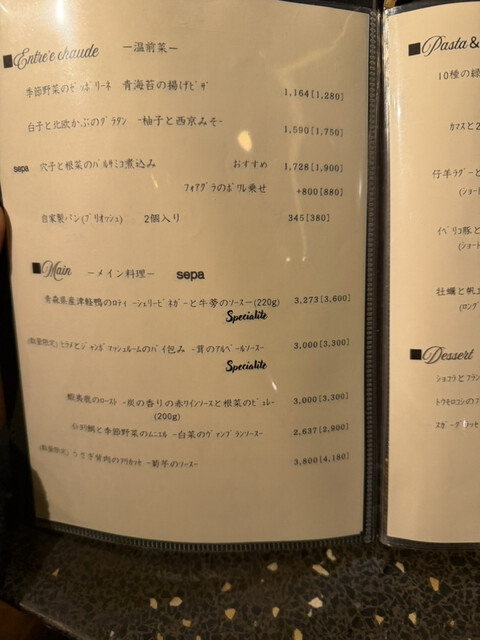 ■Entre'e chaude －温前菜－
季節野菜のゼッポリーネ 青海苔の揚げピザ 1,164[1,280]
白子と北欧かぶのグラタン -柚子と西京みそ- 1,590[1,750]
sepa 穴子と根菜のバルサミコ煮込み おすすめ 1,728[1,900]
フォアグラのポワレ乗せ +800[880]
自家製パン(ブリオッシュ) 2個入り 345[380]
■Main －メイン料理－ sepa
青森県産津軽鴨のロティ -シェリービネガーと牛蒡のソース-(220g) 3,273[3,600]
Specialite
(数量限定) ヒラメとジャンボマッシュルームのパイ包み -茸のアルベールソース- 3,000[3,300]
Specialite
蝦夷鹿のロースト -炭の香りの赤ワインソースと根菜のピュレ- 3,000[3,300]
(200g)
鯛と季節野菜のムニエル -白菜のヴァンブランソース- 2,637[2,900]
(数量限定) うさぎ骨付肉のフリカッセ -菊芋のソース- 3,800[4,180]
■Pasta &
10種の緑
カマスと2
仔羊ラグーと
(ショート
イベリコ豚と
(ショート
牡蠣と帆立
(ロング
■Dessert
ショコラとフラン
トウモロコシのブ
ヌガーグラッセ